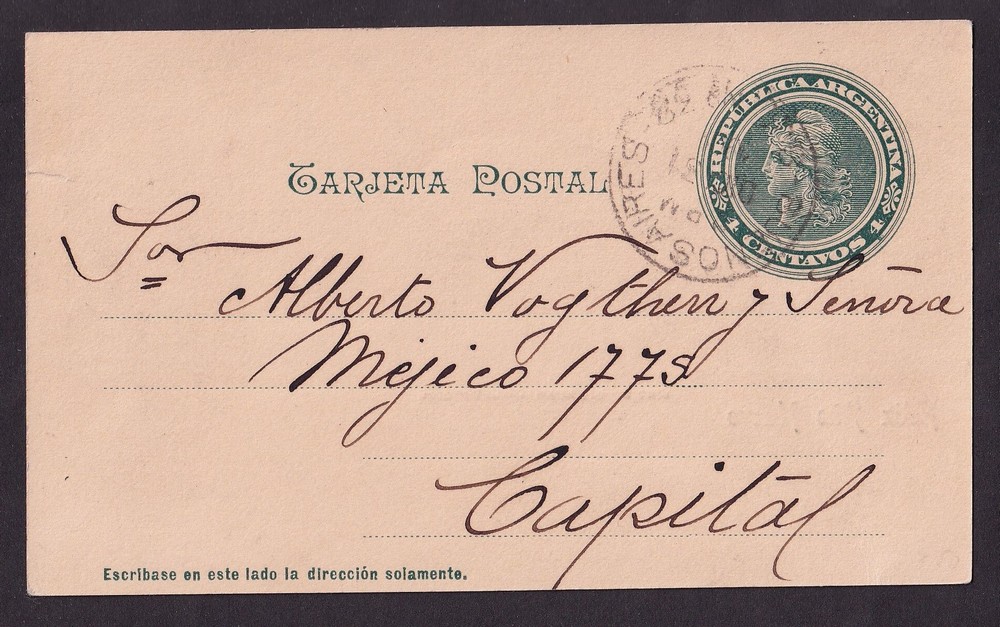 REPÚBLICA ARGENTINA
4 CENTAVOS 4
TARJETA POSTAL
Sor
Alberto Vogther y Señora
Méjico 1775
Capitál
Escríbase en este lado la dirección solamente.